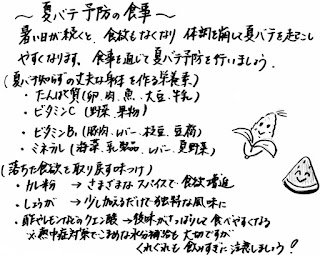 ～夏バテ予防の食事～
暑い日が続くと、食欲もなくなり 体調を崩して夏バテを起こし
やすくなります。食事を通じて夏バテ予防を行いましょう。
(夏バテ知らずの丈夫な身体を作る栄養素)
・たんぱく質(卵・肉・魚・大豆・牛乳)
・ビタミンC (野菜・果物)
・ビタミンB₁(豚肉・レバー・枝豆・豆腐)
・ミネラル(海藻・乳製品・レバー・夏野菜)
(落ちた食欲を取り戻す味つけ)
・カレー粉 → さまざまなスパイスで食欲増進
・しょうが → 少し加えるだけで独特な風味に
・酢やレモンなどのクエン酸→後味がさっぱりして食べやすくなる
※熱中症対策でこまめな水分補給も大切ですが
くれぐれも飲みすぎに注意しましょう！